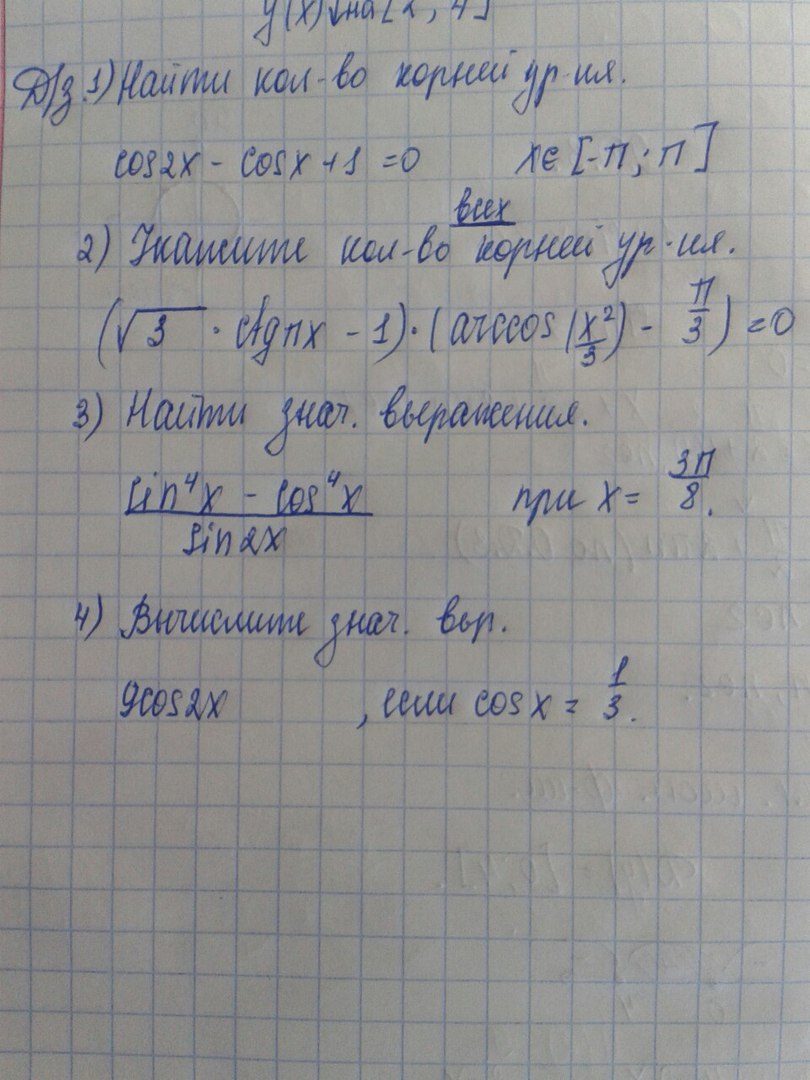 y(x) на [2, 4]
Д/з. 1) Найти кол-во корней ур-ия.
cos2x - cosx + 1 = 0 x ∈ [-π; π]
всех
2) Укажите кол-во корней ур-ия.
(√3 · ctgπx - 1) · (arccos(x²/3) - π/3) = 0
3) Найти знач. выражения.
sin⁴x - cos⁴x / sin2x при x = 3π/8.
4) Вычислите знач. выр.
9cos2x , если cosx = 1/3.